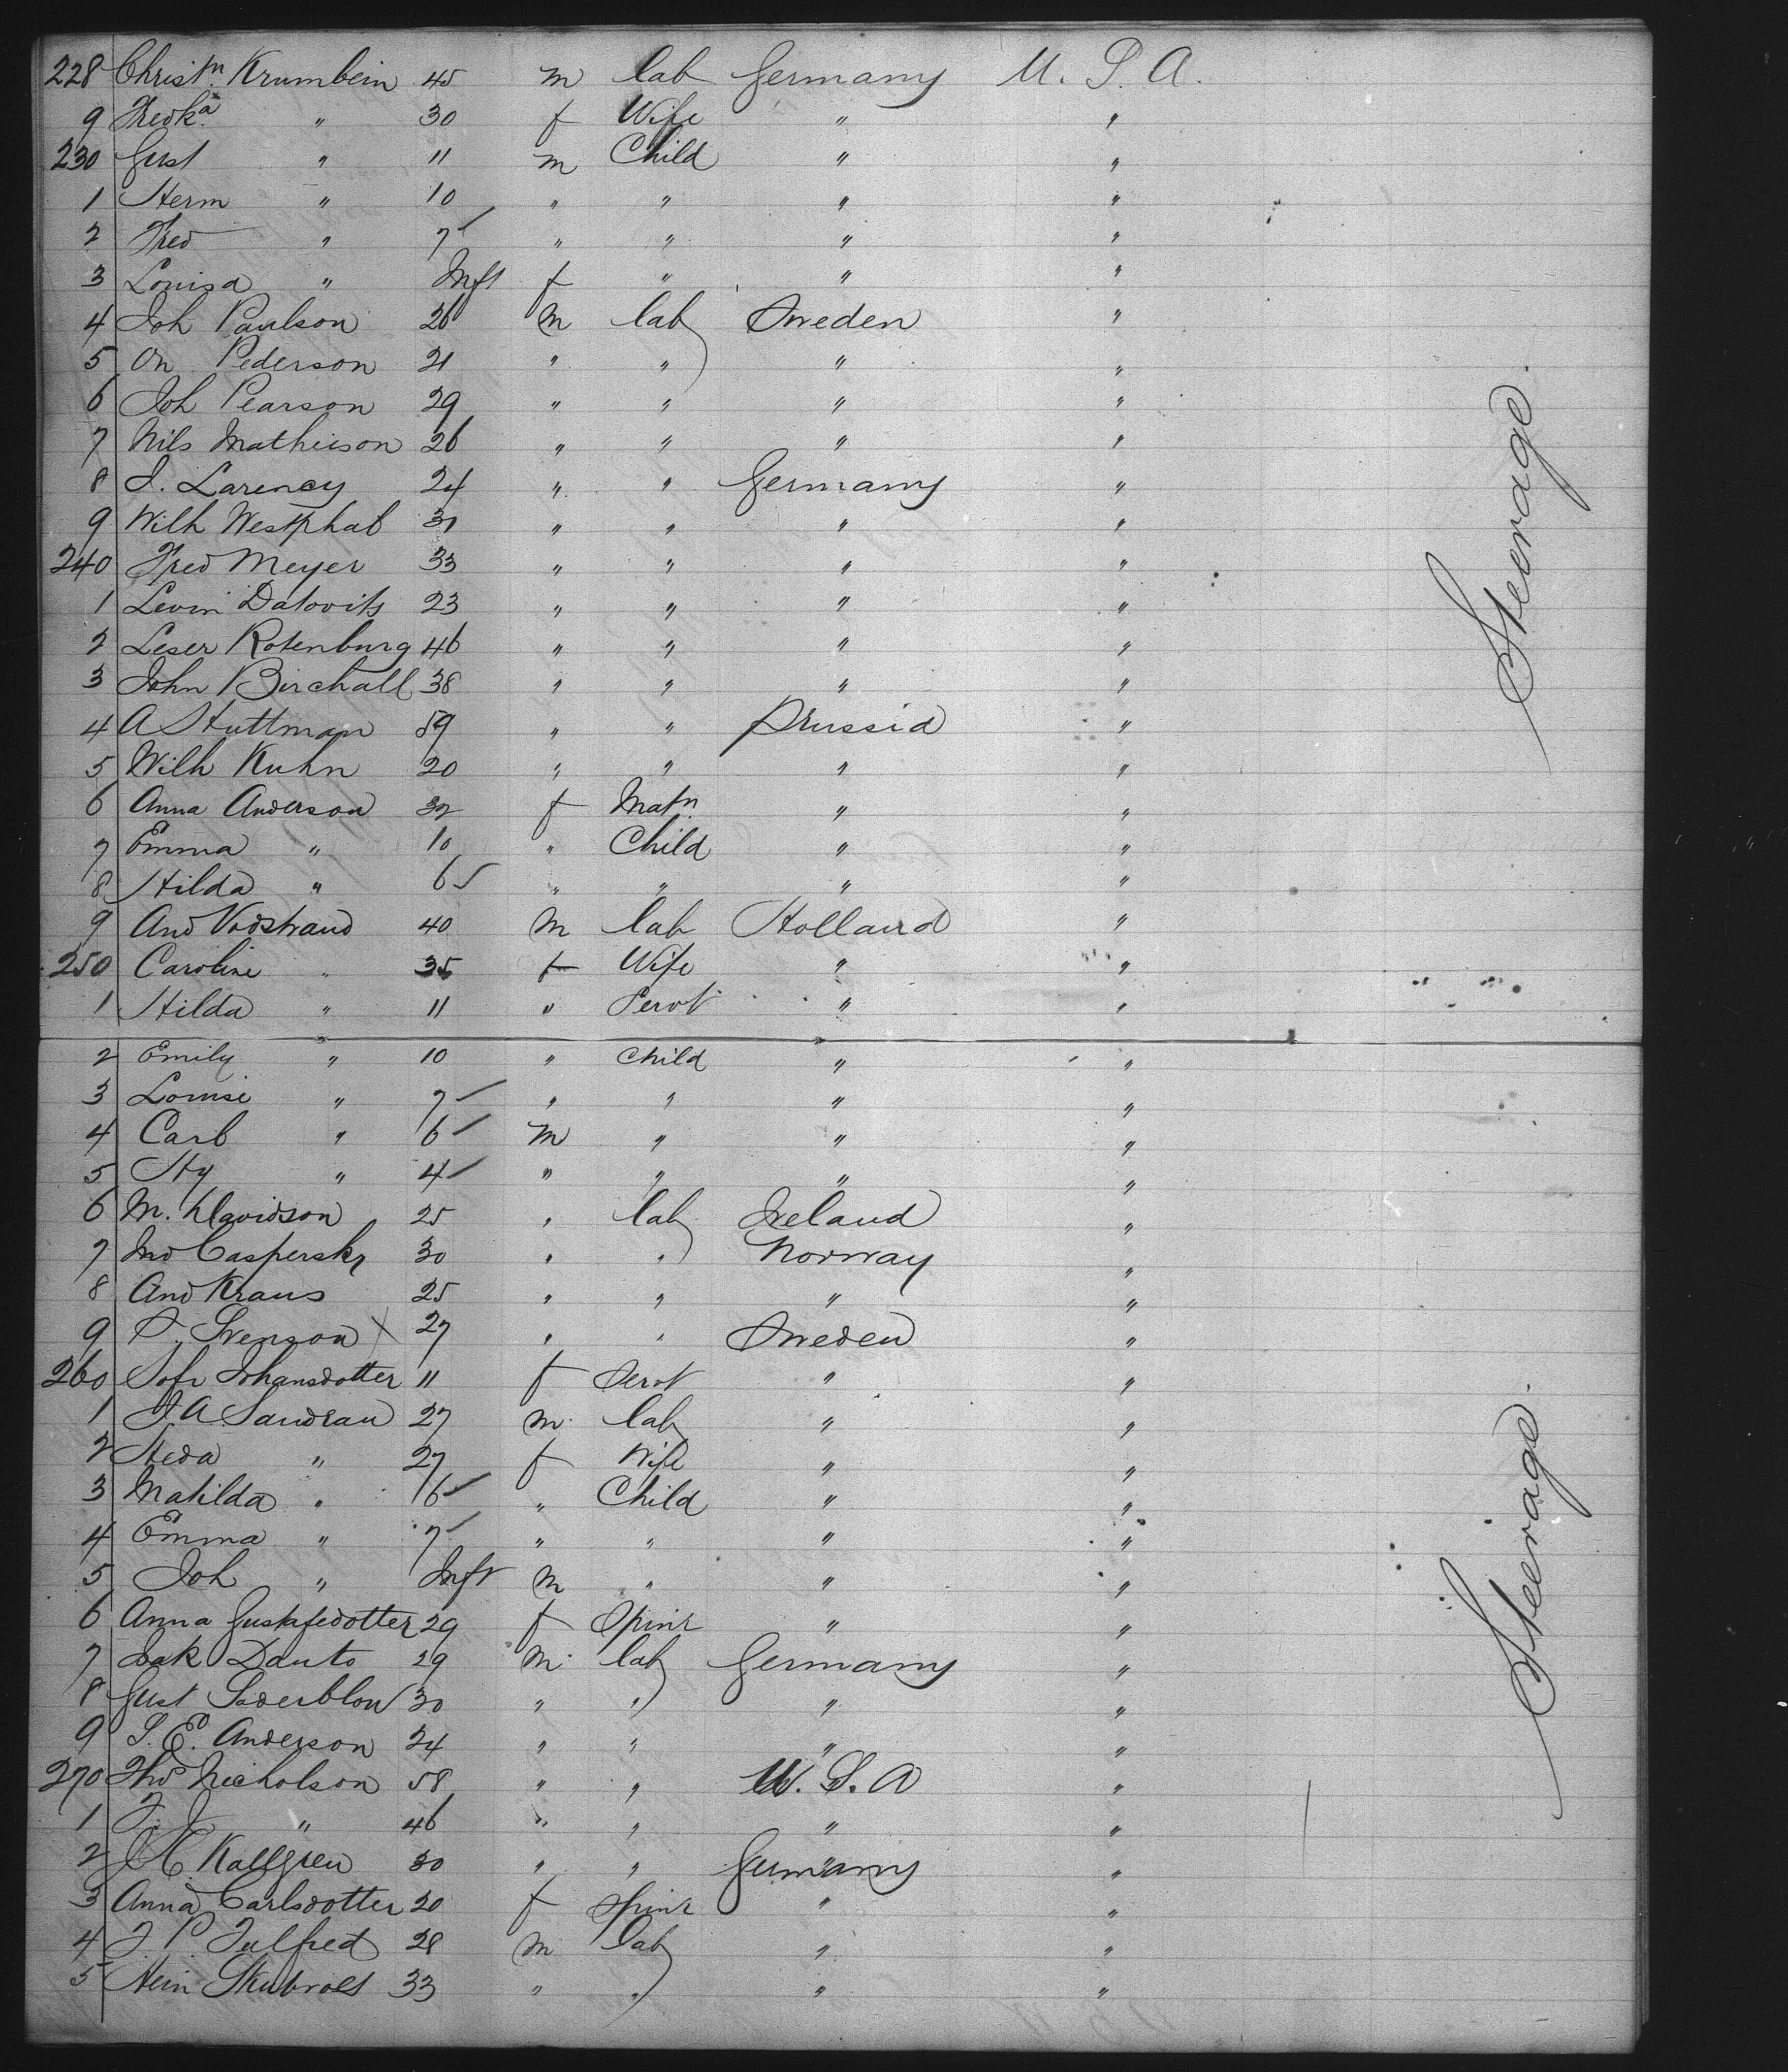 228 Christn Krumbein 45 m lab Germany U. S. A.
9 Fredka " 30 f Wife " "
230 Gust " 11 m Child " "
1 Herm " 10 " " " "
2 Fred " 7 " " " "
3 Louisa " Inft f " " "
4 Joh Paulson 26 m lab Sweden "
5 On Pederson 21 " " " "
6 Joh Pearson 29 " " " "
7 Nils Mathieson 26 " " " "
8 J. Larency 24 " " Germany "
9 Wilh Westphal 31 " " " "
240 Fred Meyer 33 " " " "
1 Levin Datovits 23 " " " "
2 Leser Rotenburg 46 " " " "
3 John Birchall 38 " " " "
4 A Stuttman 59 " " Prussia "
5 Wilh Kuhn 20 " " " "
6 Anna Anderson 32 f Matn " "
7 Emma " 10 " Child " "
8 Hilda " 6 " " " "
9 And Vodstrand 40 m lab Holland "
250 Caroline " 35 f Wife " "
1 Hilda " 11 " Servt " "
2 Emily " 10 " Child " "
3 Louise " 7 " " " "
4 Carl " 6 m " " "
5 Hy " 4 " " " "
6 M. Davidson 25 " lab Ireland "
7 Jno Caspersky 30 " " Norway "
8 And Kraus 25 " " " "
9 S. Svenson X 27 " " Sweden "
260 Sofi Johansdotter 11 f Servt " "
1 J. A. Sandrau 27 m lab " "
2 Heda " 27 f Wife " "
3 Matilda " 6 " Child " "
4 Emma " 7 " " " "
5 Joh " Inft m " " "
6 Anna Gustafsdotter 29 f Spinr " "
7 Jak Dauts 29 m lab Germany "
8 Gust Soderblow 30 " " " "
9 S. E. Anderson 24 " " " "
270 Tho Nicholson 58 " " U. S. A "
1 F. J. " 46 " " " "
2 Kallgren 30 " " Germany "
3 Anna Carlsdotter 20 f Spinr " "
4 J. P. Tulfred 28 m lab " "
5 Hein 33 " " " "
Steerage.
Steerage.